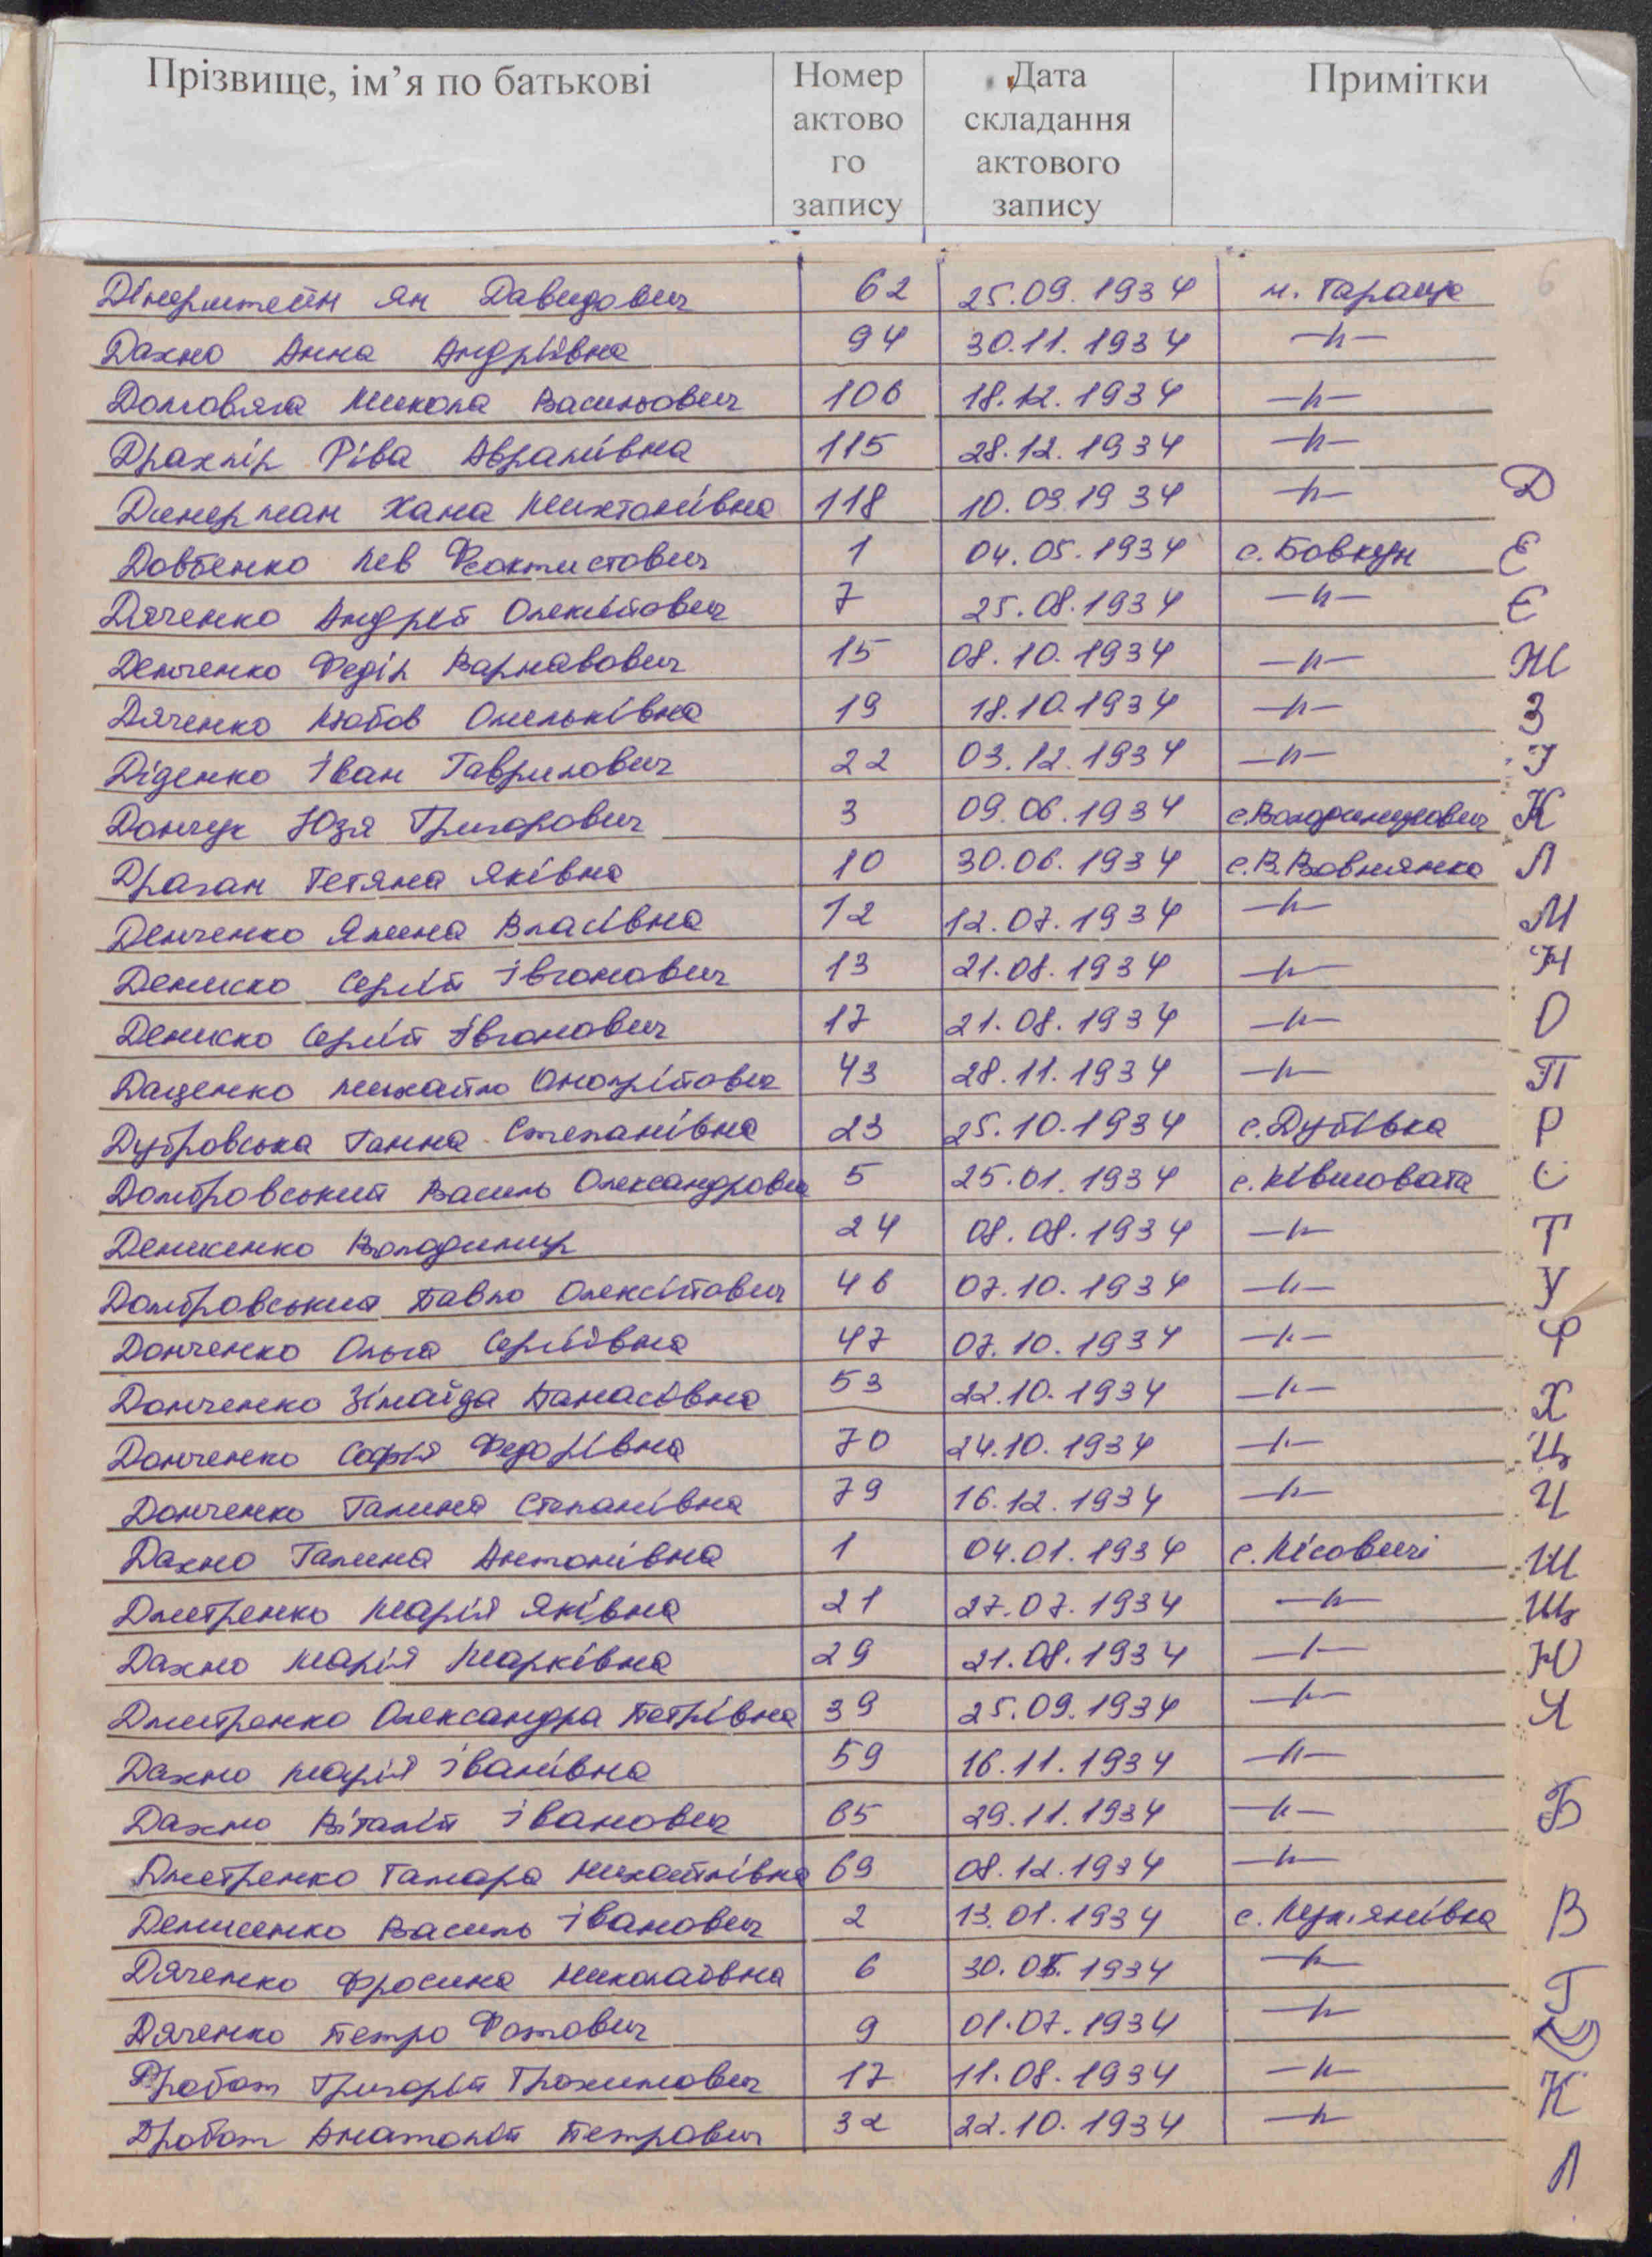 Прізвище, ім’я по батькові
Номер актово го запису
Дата складання актового запису
Примітки
Дінерштейн Ян Давидович 62 25.09.1934 м. Тараща
Дахно Анна Андріївна 94 30.11.1934 —"—
Долговяга Микола Васильович 106 18.12.1934 —"—
Драхлір Ріва Абрамівна 115 28.12.1934 —"—
Динерман Хана 118 10.03.1934 —"—
Довбенко Лев Феоктистович 1 04.05.1934 с. Бовкун
Дяченко Андрій Олексійович 7 25.08.1934 —"—
Демченко Федір Варнавович 15 08.10.1934 —"—
Дяченко Любов Омельківна 19 18.10.1934 —"—
Діденко Іван Гаврилович 22 03.12.1934 —"—
Дончук Юзя Григорович 3 09.06.1934 с.
Драган Тетяна Яківна 10 30.06.1934 с.В.Вовнянка
Демченко Ялина Власівна 12 12.07.1934 —"—
Дениско Сергій Івганович 13 21.08.1934 —"—
Дениско Сергій Івганович 17 21.08.1934 —"—
Даценко Михайло Онопрійович 43 28.11.1934 —"—
Дубровська Ганна Степанівна 23 25.10.1934 с.Дубівка
Домбровський Василь Олександрович 5 25.01.1934 с. Ківшовата
Денисенко Володимир 24 08.08.1934 —"—
Домбровський Павло Олексійович 46 07.10.1934 —"—
Донченко Ольга Сергіївна 47 07.10.1934 —"—
Донченко Зінаїда Панасівна 53 22.10.1934 —"—
Донченко Софія Федорівна 70 24.10.1934 —"—
Донченко Галина Степанівна 79 16.12.1934 —"—
Дахно Галина Антонівна 1 04.01.1934 с. Лісовичі
Дмитренко Марія Яківна 21 27.07.1934 —"—
Дахно Марія Марківна 29 21.08.1934 —"—
Дмитренко Олександра Петрівна 39 25.09.1934 —"—
Дахно Марія Іванівна 59 16.11.1934 —"—
Дахно Віталій Іванович 65 29.11.1934 —"—
Дмитренко Тамара Михайлівна 69 08.12.1934 —"—
Денисенко Василь Іванович 2 13.01.1934 с. Лук'янівка
Дяченко Фросина Миколаївна 6 30.05.1934 —"—
Дяченко Петро Фотович 9 01.07.1934 —"—
Дробот Григорій Трохимович 17 11.08.1934 —"—
Дробот Анатолій Петрович 32 22.10.1934 —"—
6
Д
Е
Є
Ж
З
І
К
Л
М
Н
О
П
Р
С
Т
У
Ф
Х
Ц
Ч
Ш
Щ
Ю
Я
Б
В
Г
К
Л